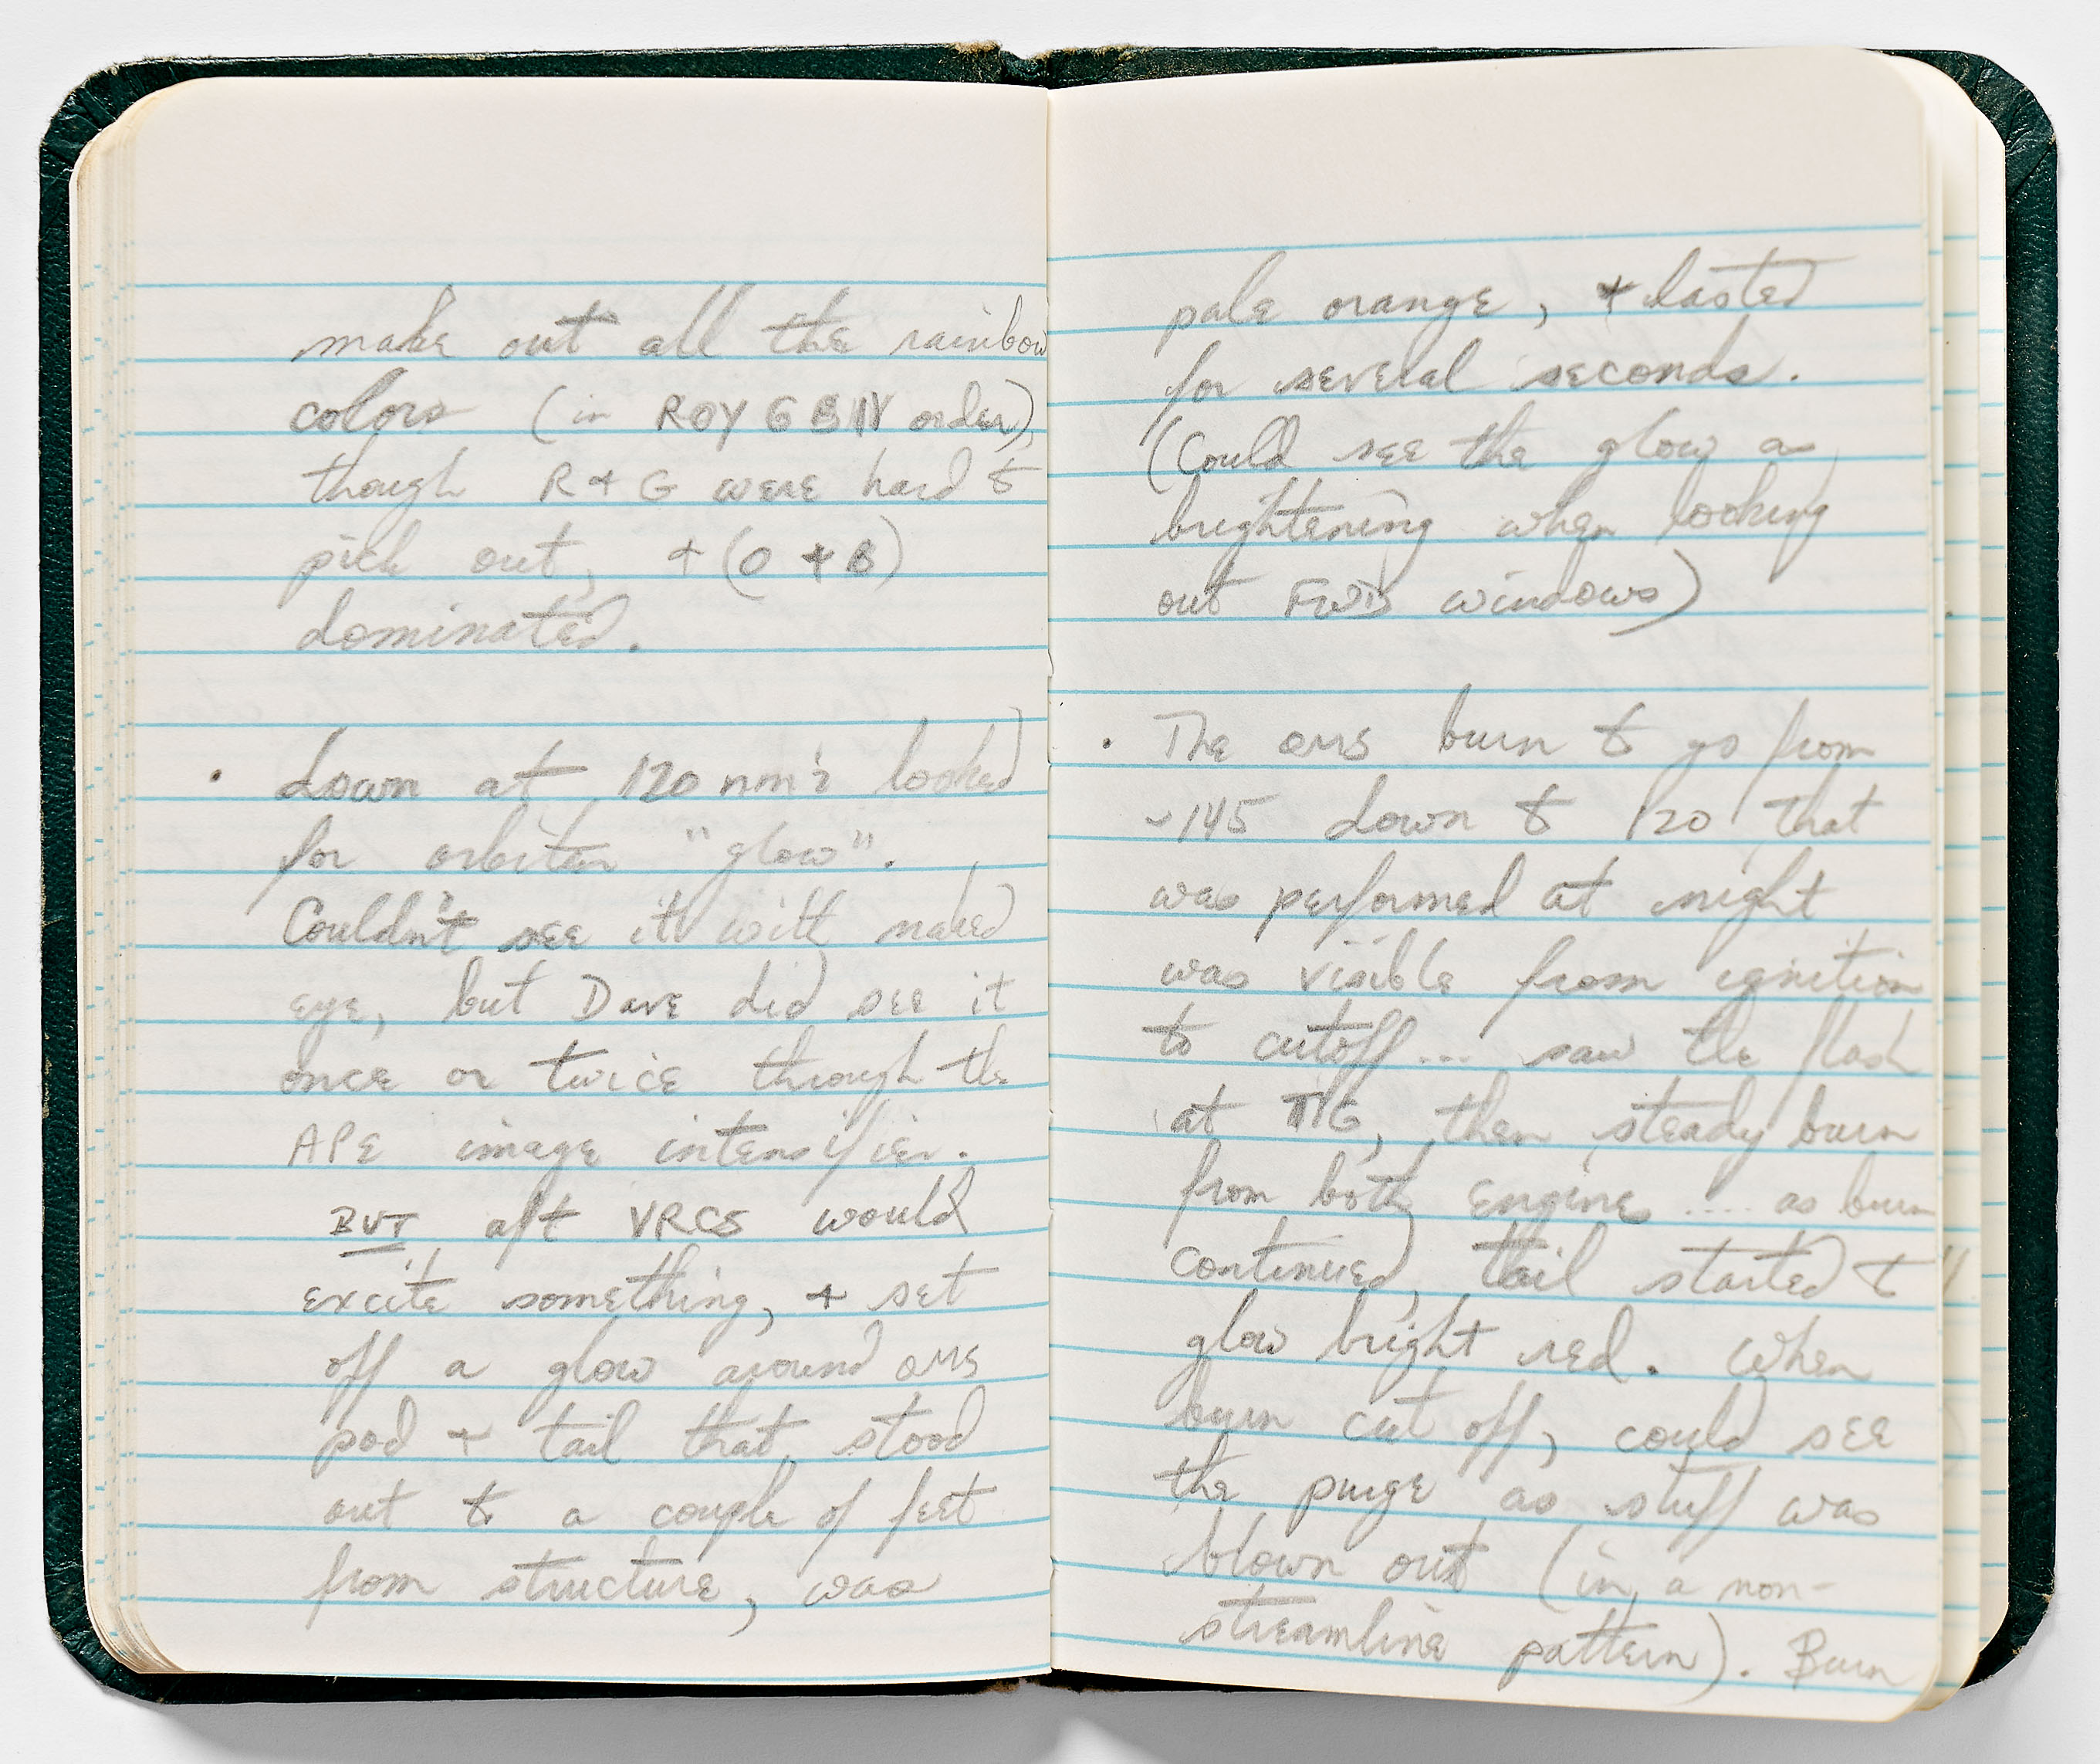 make out all the rainbow
colors (in ROY G BIV order),
though R + G were hard to
pick out, + (O + B)
dominated.
• Down at 120 nmi looked
for orbiter "glow".
Couldn't see it with naked
eye, but Dave did see it
once or twice through the
APE image intensifier.
BUT aft VRCS would
excite something, + set
off a glow around OMS
pod + tail that stood
out to a couple of feet
from structure, was
pale orange, + lasted
for several seconds.
(Could see the glow as
brightening when looking
out FWD windows)
• The OMS burn to go from
~145 down to 120 that
was performed at night
was visible from ignition
to cutoff... saw the flash
at TIG, then steady burn
from both engines .... as burn
continued, tail started to
glow bright red. When
burn cut off, could see
the purge as stuff was
blown out (in a non-
streamline pattern). Burn